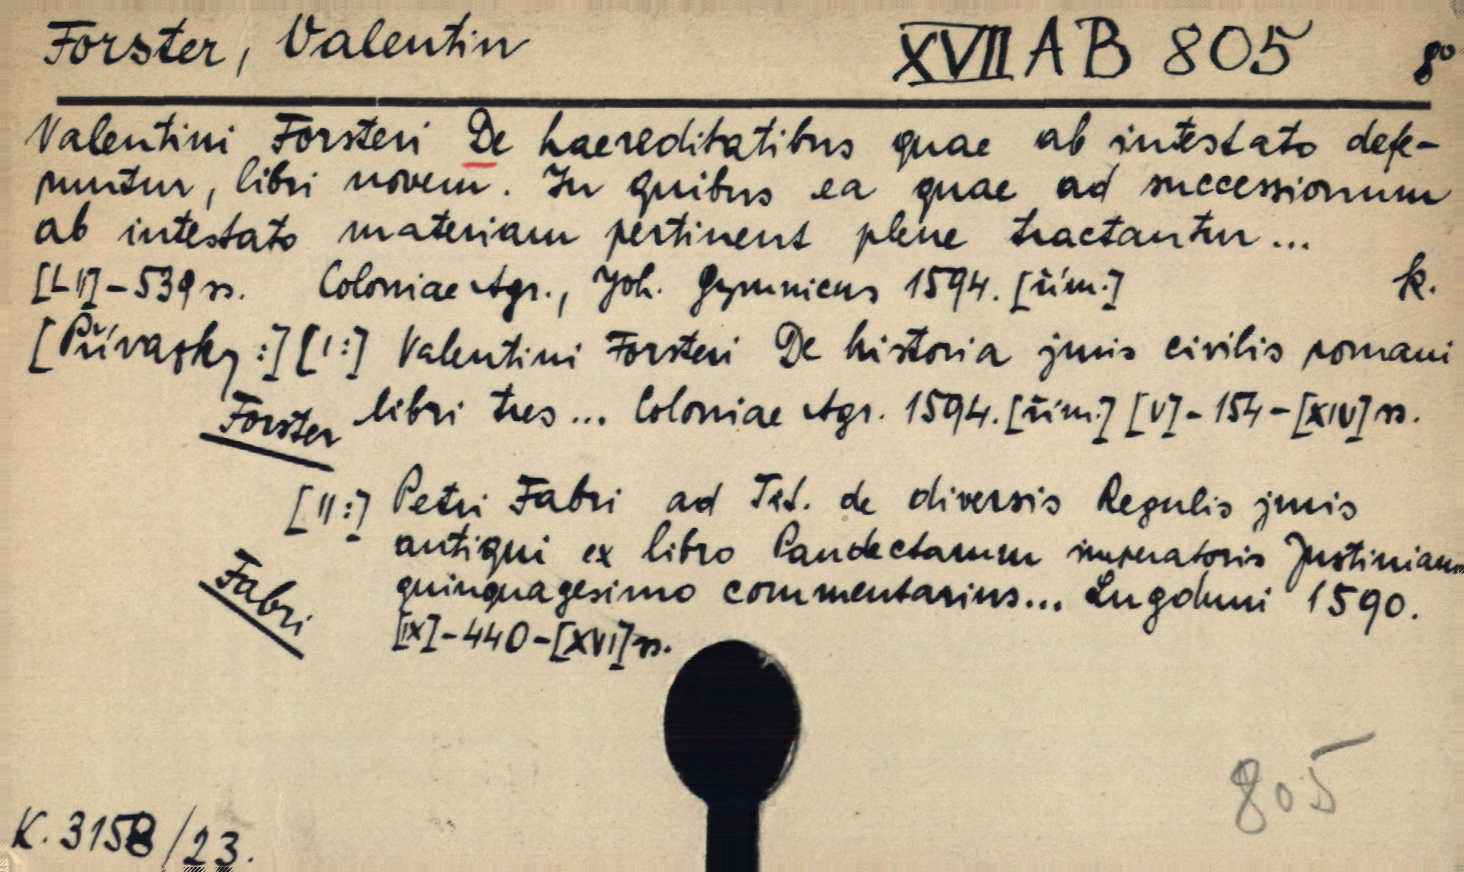 Forster, Valentin XVII AB 805 8°
Valentini Forsteri De haereditatibus quae ab intestato defe-
runtur, libri novem. In quibus ea quae ad successionum
ab intestato materiam pertinent plene tractantur...
[LII]-539 ss. Coloniae Agr., Joh. Gymnicus 1594. [řím.] k.
[Přívazky:] [I:] Valentini Forsteri De historia juris civilis romani
Forster libri tres... Coloniae Agr. 1594. [řím.] [V]-154-[XIV] ss.
[II:] Petri Fabri ad Tit. de diversis Regulis juris
antiqui ex libro Pandectarum imperatoris Justiniani
Fabri quinquagesimo commentarius... Lugduni 1590.
[IX]-440-[XVI] ss.
805
K. 3158/23.